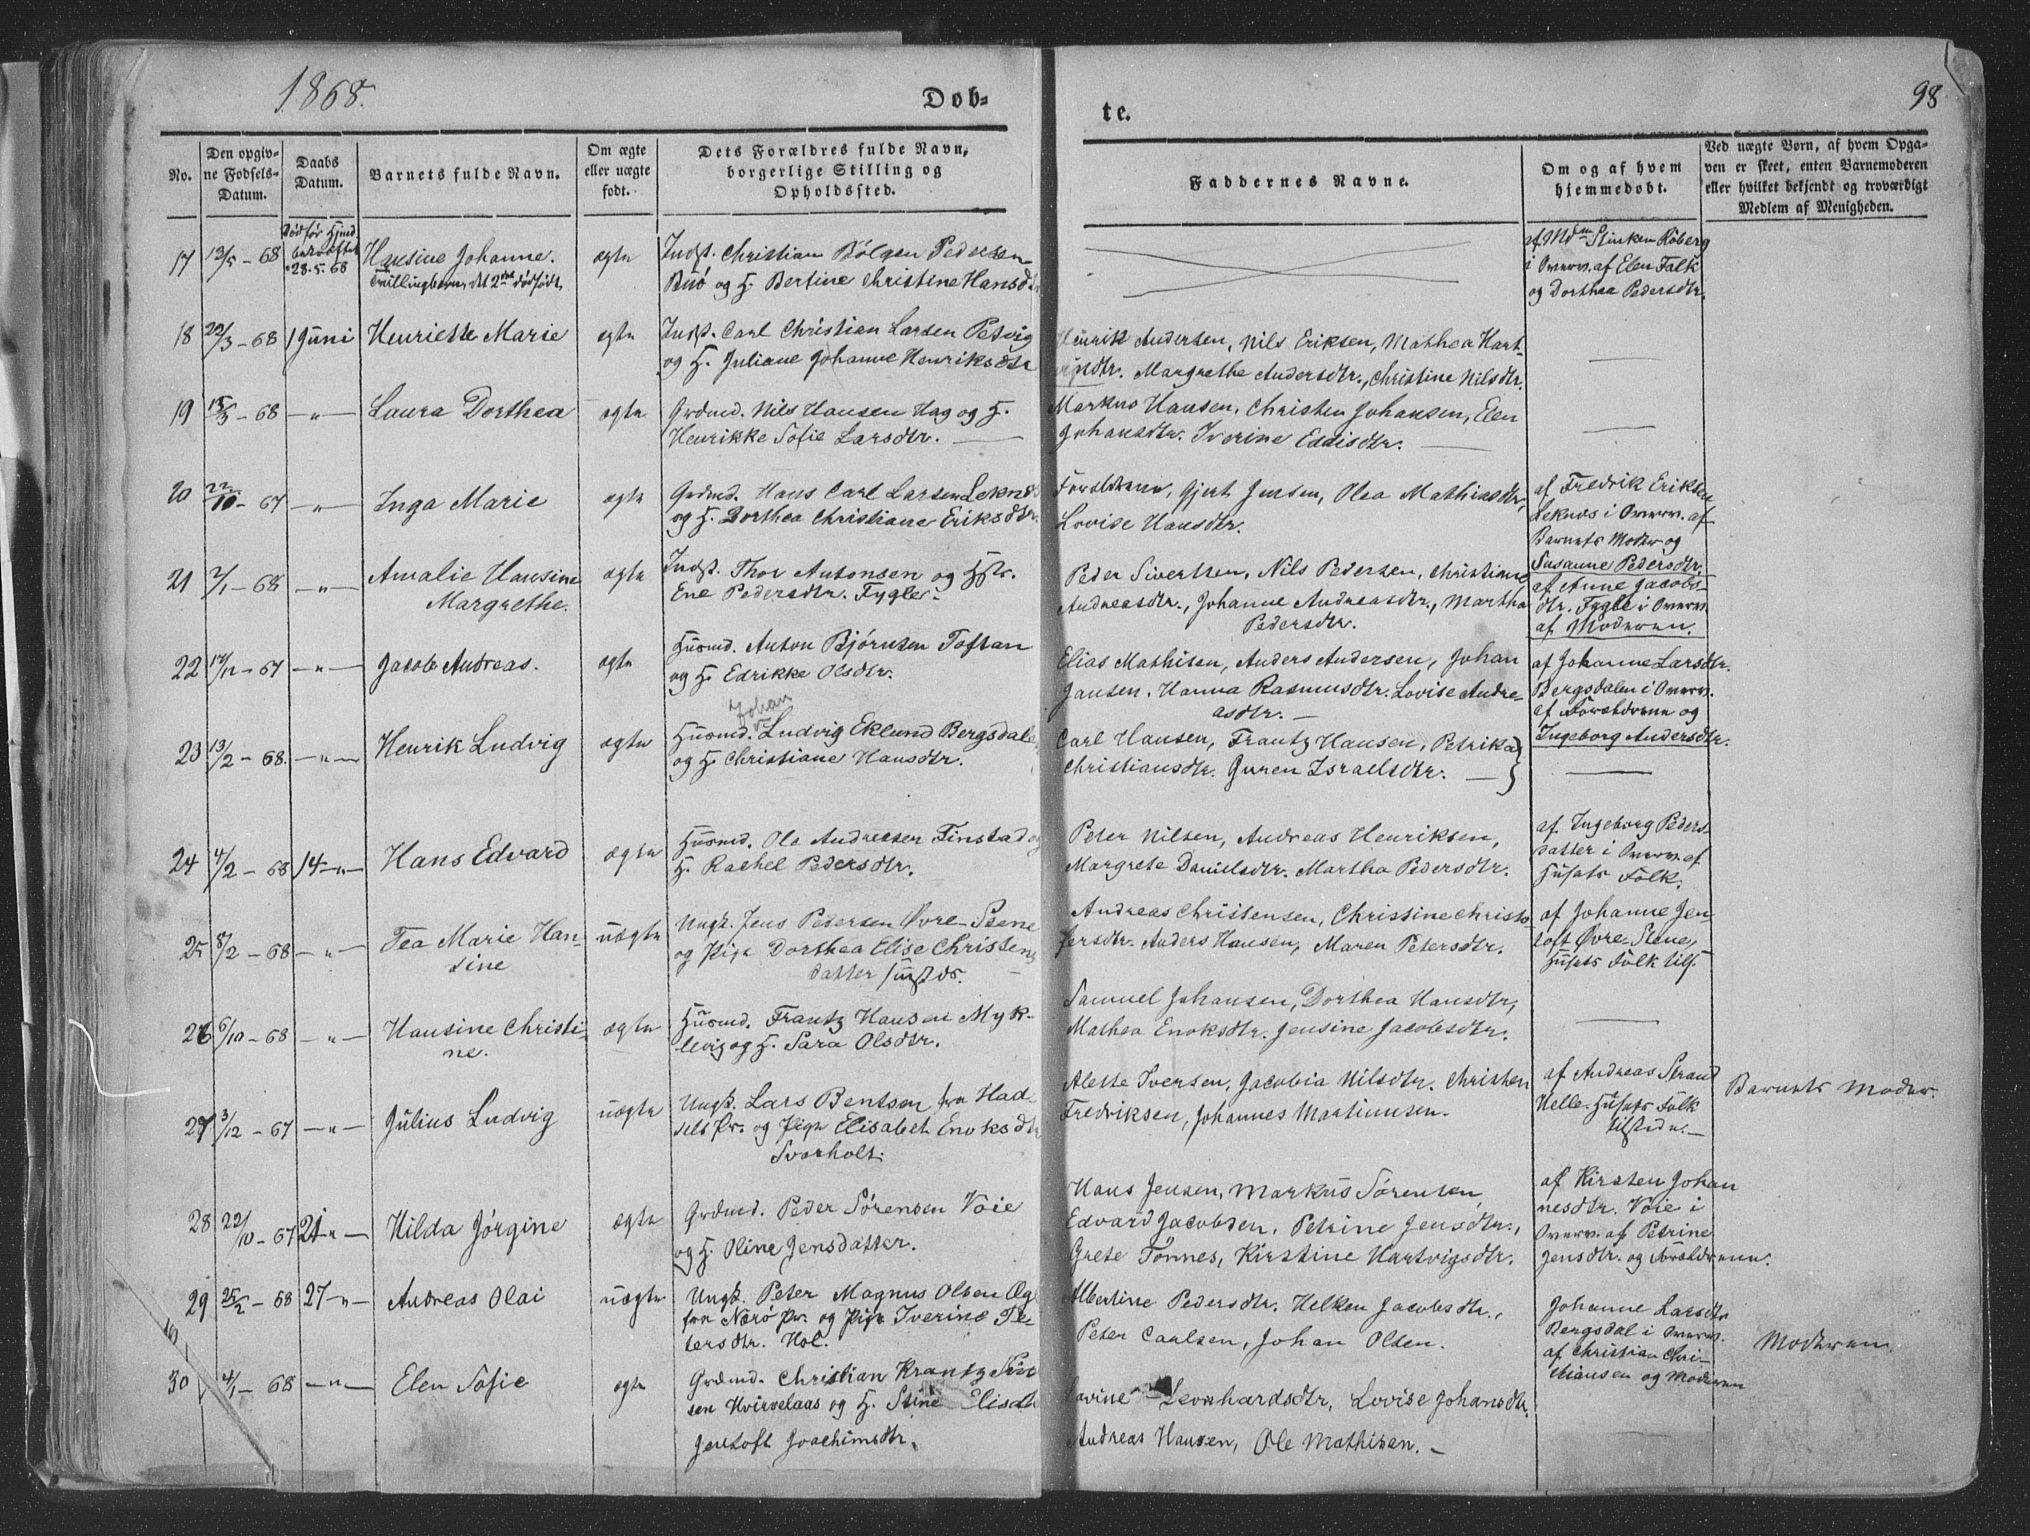 1868.
Døb-
te.
98
No.
Den opgiv-
ne Fødsels-
Datum.
Daabs
Datum.
Barnets fulde Navn.
Om ægte
eller uægte
født.
Dets Forældres fulde Navn,
borgerlige Stilling og
Opholdssted.
Faddernes Navne.
Om og af hvem
hjemmedøbt.
Ved uægte Børn, af hvem Opga-
ven er skeet, enten Barnemoderen
eller hvilket bekjendt og troværdigt
Medlem af Menigheden.
17
13/5 - 68
Død før Hjmd.
28.5.68
Hansine Johanne.
Tvillingbarn, det 2det dødfødt
ægte
Indst. Christian Bølgen Pedersen
Buø og H. Bertine Christine Hansdtr
i Overv. af Elen Falk
og Dorthea Pedersdtr.
18
22/3 - 68
1 Juni
Henriette Marie
ægte
Indst. Carl Christian Larsen Petvig
og H. Juliane Johanne Henriksdtr
Henrik Andersen, Nils Eriksen, Mathea Hart-
vigsdtr. Margrethe Andersdtr., Christine Nilsdtr.
19
15/3 - 68
— „ —
Laura Dorthea
ægte
Grdmd. Nils Hansen Hag og H.
Henrikke Sofie Larsdtr. —
Markus Hansen, Christen Johansen, Elen
Johansdtr. Iverine Eddisdtr. —
20
22/10 - 67
— „ —
Inga Marie
ægte
Grdmd. Hans Carl Larsen Leknes
og H. Dorthea Christiane Eriksdtr.
Forældrene, Gjert Jensen, Olea Mathiasdtr,
Lovise Hansdtr.
af Fredrik Eriksen
Leknes i Overv. af
Barnets Moder og
Susanne Pedersdtr.
21
2/1 - 68
— „ —
Amalie Hansine
Margrethe.
ægte
Indst. Thor Antonsen og Hstr.
Ene Pedersdtr. Fygle.
Peder Sivertsen, Nils Pedersen, Christiane
Andreasdtr., Johanne Andreasdtr., Martha
Pedersdtr.
af Anne Jacobs-
dtr. Fygle i Overv.
af Moderen.
22
17/12 - 67
— „ —
Jacob Andreas.
ægte
Husmd. Anton Bjørnsen Toftan
og H. Edrikke Olsdtr.
Elias Mathisen, Anders Andersen, Johan
Jansen, Hanna Rasmusdtr. Lovise Andre-
asdtr. —
af Johanne Larsdtr.
Bergsdalen i Overv.
af Forældrene og
Ingeborg Andersdtr.
23
13/2 - 68.
— „ —
Henrik Ludvig
ægte
Johan
Husmd. Ludvig Eklund Bergsdalen
og H. Christiane Hansdtr.
Carl Hansen, Frantz Hansen, Petrika
Christiansdtr. Guren Israelsdtr. —
24
4/2 - 68
14 - „ -
Hans Edvard
ægte
Husmd. Ole Andreasen Finstad og
H. Rachel Pedersdtr.
Peter Nilsen, Andreas Henriksen,
Margrete Danielsdtr. Martha Pedersdtr.
af Ingeborg Peders-
datter i Overv. af
Husets Folk.
25
8/2 - 68
- „ -
Tea Marie Han-
sine
uægte
Ungk. Jens Pedersen Øvre-Stene
og Pige Dorthea Elise Christens
datter sustds.
Andreas Christensen, Christine Christo-
fersdtr. Anders Hansen, Maren Petersdtr.
af Johanne Jen-
toft Øvre-Stene,
Husets Folk tilst.
26
6/10 - 68
- „ -
Hansine Christi-
ne.
ægte
Husmd. Frantz Hansen Myk-
levig og H. Sara Olsdtr.
Samuel Johansen, Dorthea Hansdtr,
Mathea Enoksdtr. Jensine Jacobsdtr.
27
3/12 - 67
— „ —
Julius Ludvig
uægte
Ungk. Lars Bentsen fra Had-
sels Pr. og Pige Elisabet Enoksdtr
Svarholt.
Alette Iversen, Jacobia Nilsdtr. Christen
Fredriksen, Johannes Martinussen.
af Andreas Strand
Helle. Husets Folk
tilstede. —
Barnets Moder.
28
22/10 - 67
21 - „ -
Hilda Jørgine
ægte
Grdmd. Peder Sørensen Voie
og H. Oline Jensdatter.
Hans Jensen, Markus Sørensen,
Edvard Jacobsen, Petrine Jensdtr.,
Grete Tønnes, Kirstine Hartvigsdtr.
af Kirsten Johan
nesdtr. Voie i
Overv. af Petrine
Jensdtr. og Forældrene.
29
25/2 - 68
27 - „ -
Andreas Olai
uægte
Ungk. Peter Magnus Olsen
fra Nærø Pr. og Pige Iverine Pe-
tersdtr. Hol.
Albertine Pedersdtr. Helken Jacobsdtr.,
Peter Carlsen, Johan Olsen.
Johanne Larsdtr
Bergsdal i Overv.
af Christian Chri-
stiansen og Moderen
Moderen.
30
4/1 - 68
— „ —
Elen Sofie
ægte
Grdmd. Christian Krantz
sen Hvirvelaas og H. Stine Elisab
Jentoft Joachimsdtr.
Lovine Leonhardsdtr, Lovise Johansdtr.
Andreas Hansen, Ole Mathisen. —